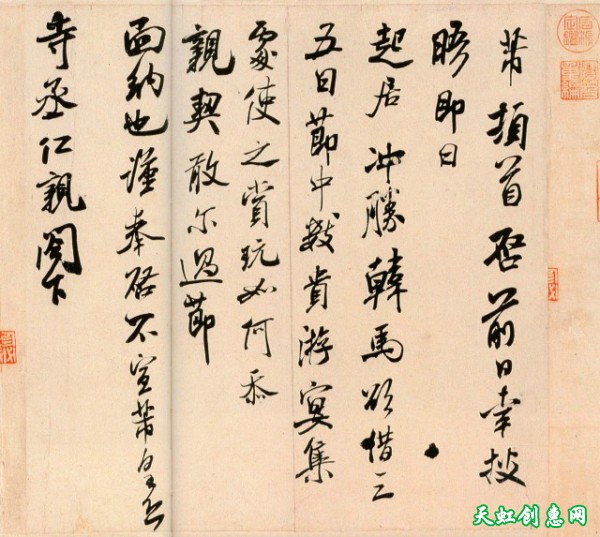 芾頓首启前日幸披
晤即日
起居冲勝韓馬欲借三
五日節中数貴游宴集
處使之賞玩如何忝
親契敢尔過節
面納也謹奉启不宣芾皇恐
寺丞仁親閤下
天虹创惠网